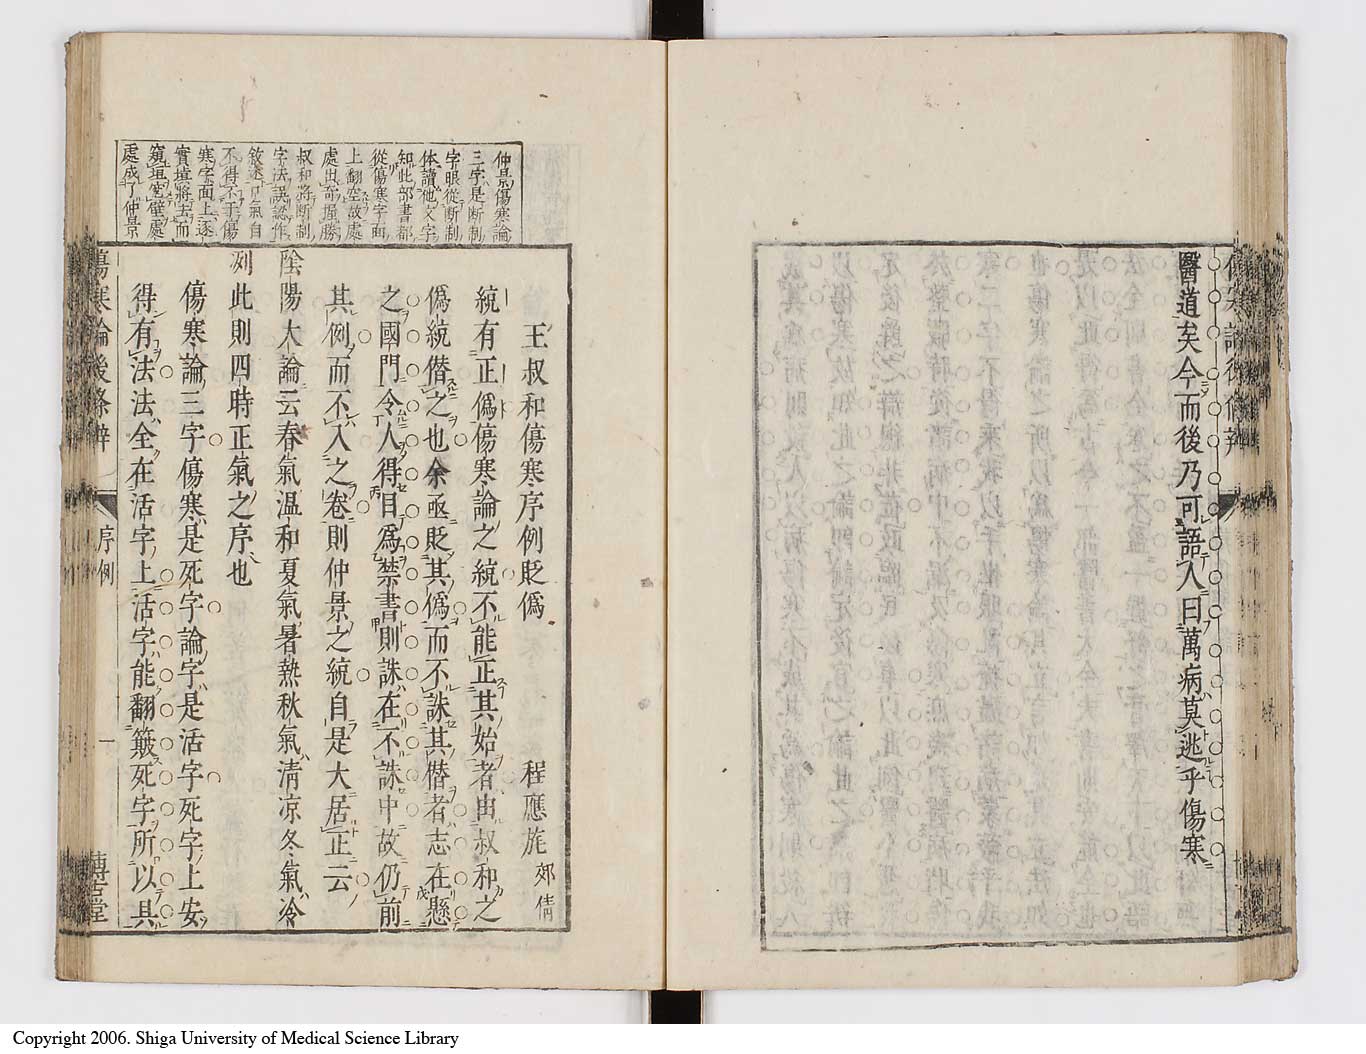 醫道矣今而後乃可語人曰萬病莫逃乎傷寒
仲景傷寒論
三字是斷制
字眼從斷制
体讀他文字
知此部書都
從傷寒字面
上翻空故處
處出奇握勝
叔和將斷制
字法誤認作
敘述口氣自
不得不于傷
寒字面上逐
實填將去而
窺垣室壁處
處成了仲景
王叔和傷寒序例貶僞
程應旄 郊倩
統有正僞傷寒論之統不能正其始者由叔和之
僞統僭之也余亟貶其僞而不誅其僭者志在懸
之國門令人得目為禁書則誅在不誅中故仍前
其例而不入之卷則仲景之統自是大居正云
陰陽大論云春氣溫和夏氣暑熱秋氣清凉冬氣冷
冽此則四時正氣之序也
傷寒論三字傷寒是死字論字是活字死字上安
得有法法全在活字上活字能翻簸死字所以具
傷寒論後條辨
序例
一
博古堂
Copyright 2006. Shiga University of Medical Science Library